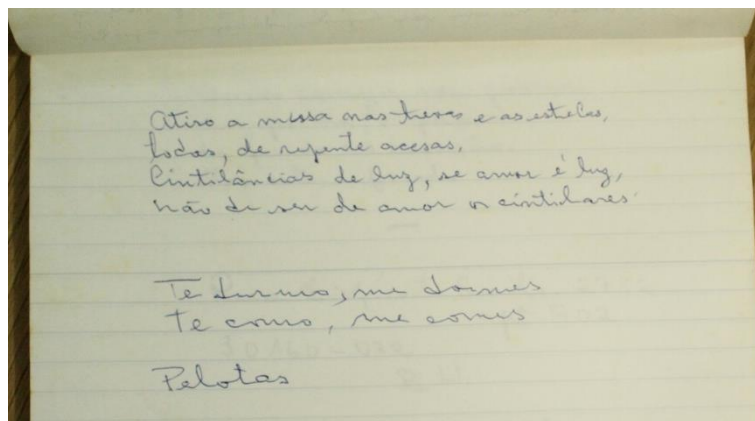 Atiro a missa nas trevas e as estrelas,
todas, de repente acesas,
Cintilâncias de luz, se amor é luz,
não de ser de amor os cintilares.
Te durmo, me dormes
te como, me comes
Pelotas